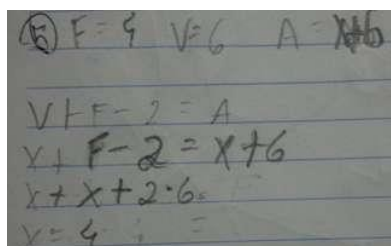 ⑤ F = 4 V = 6 A = X+6
V + F - 2 = A
x + F - 2 = X + 6
x + x + 2 · 6
x = 4 =